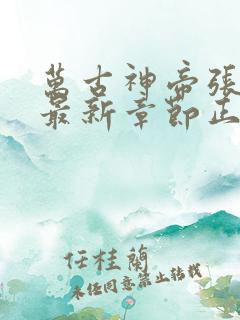 萬古神帝張
最新章節正
任桂蘭
未經同意禁止轉載